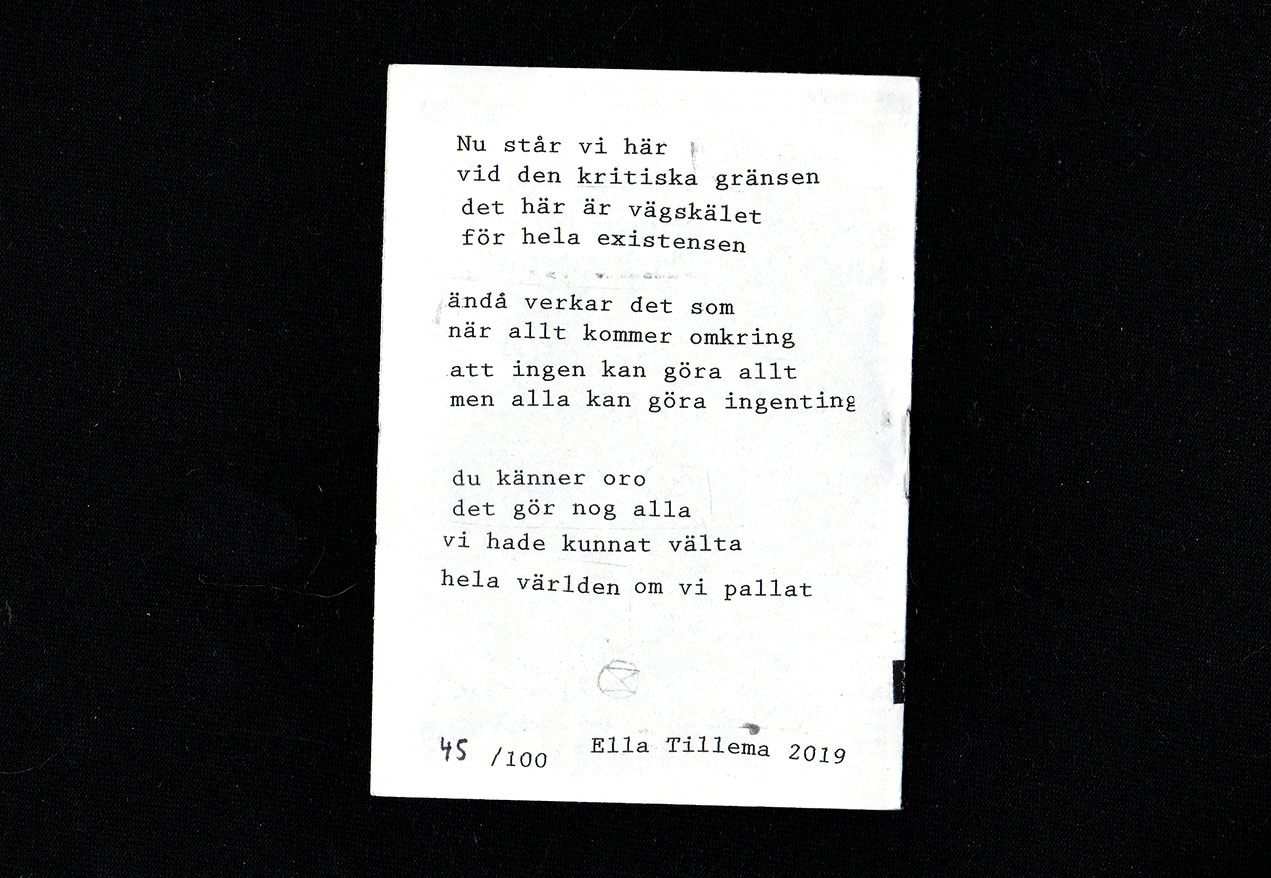 Nu står vi här
vid den kritiska gränsen
det här är vägskälet
för hela existensen
ändå verkar det som
när allt kommer omkring
att ingen kan göra allt
men alla kan göra ingenting
du känner oro
det gör nog alla
vi hade kunnat välta
hela världen om vi pallat
45 /100 Ella Tillema 2019